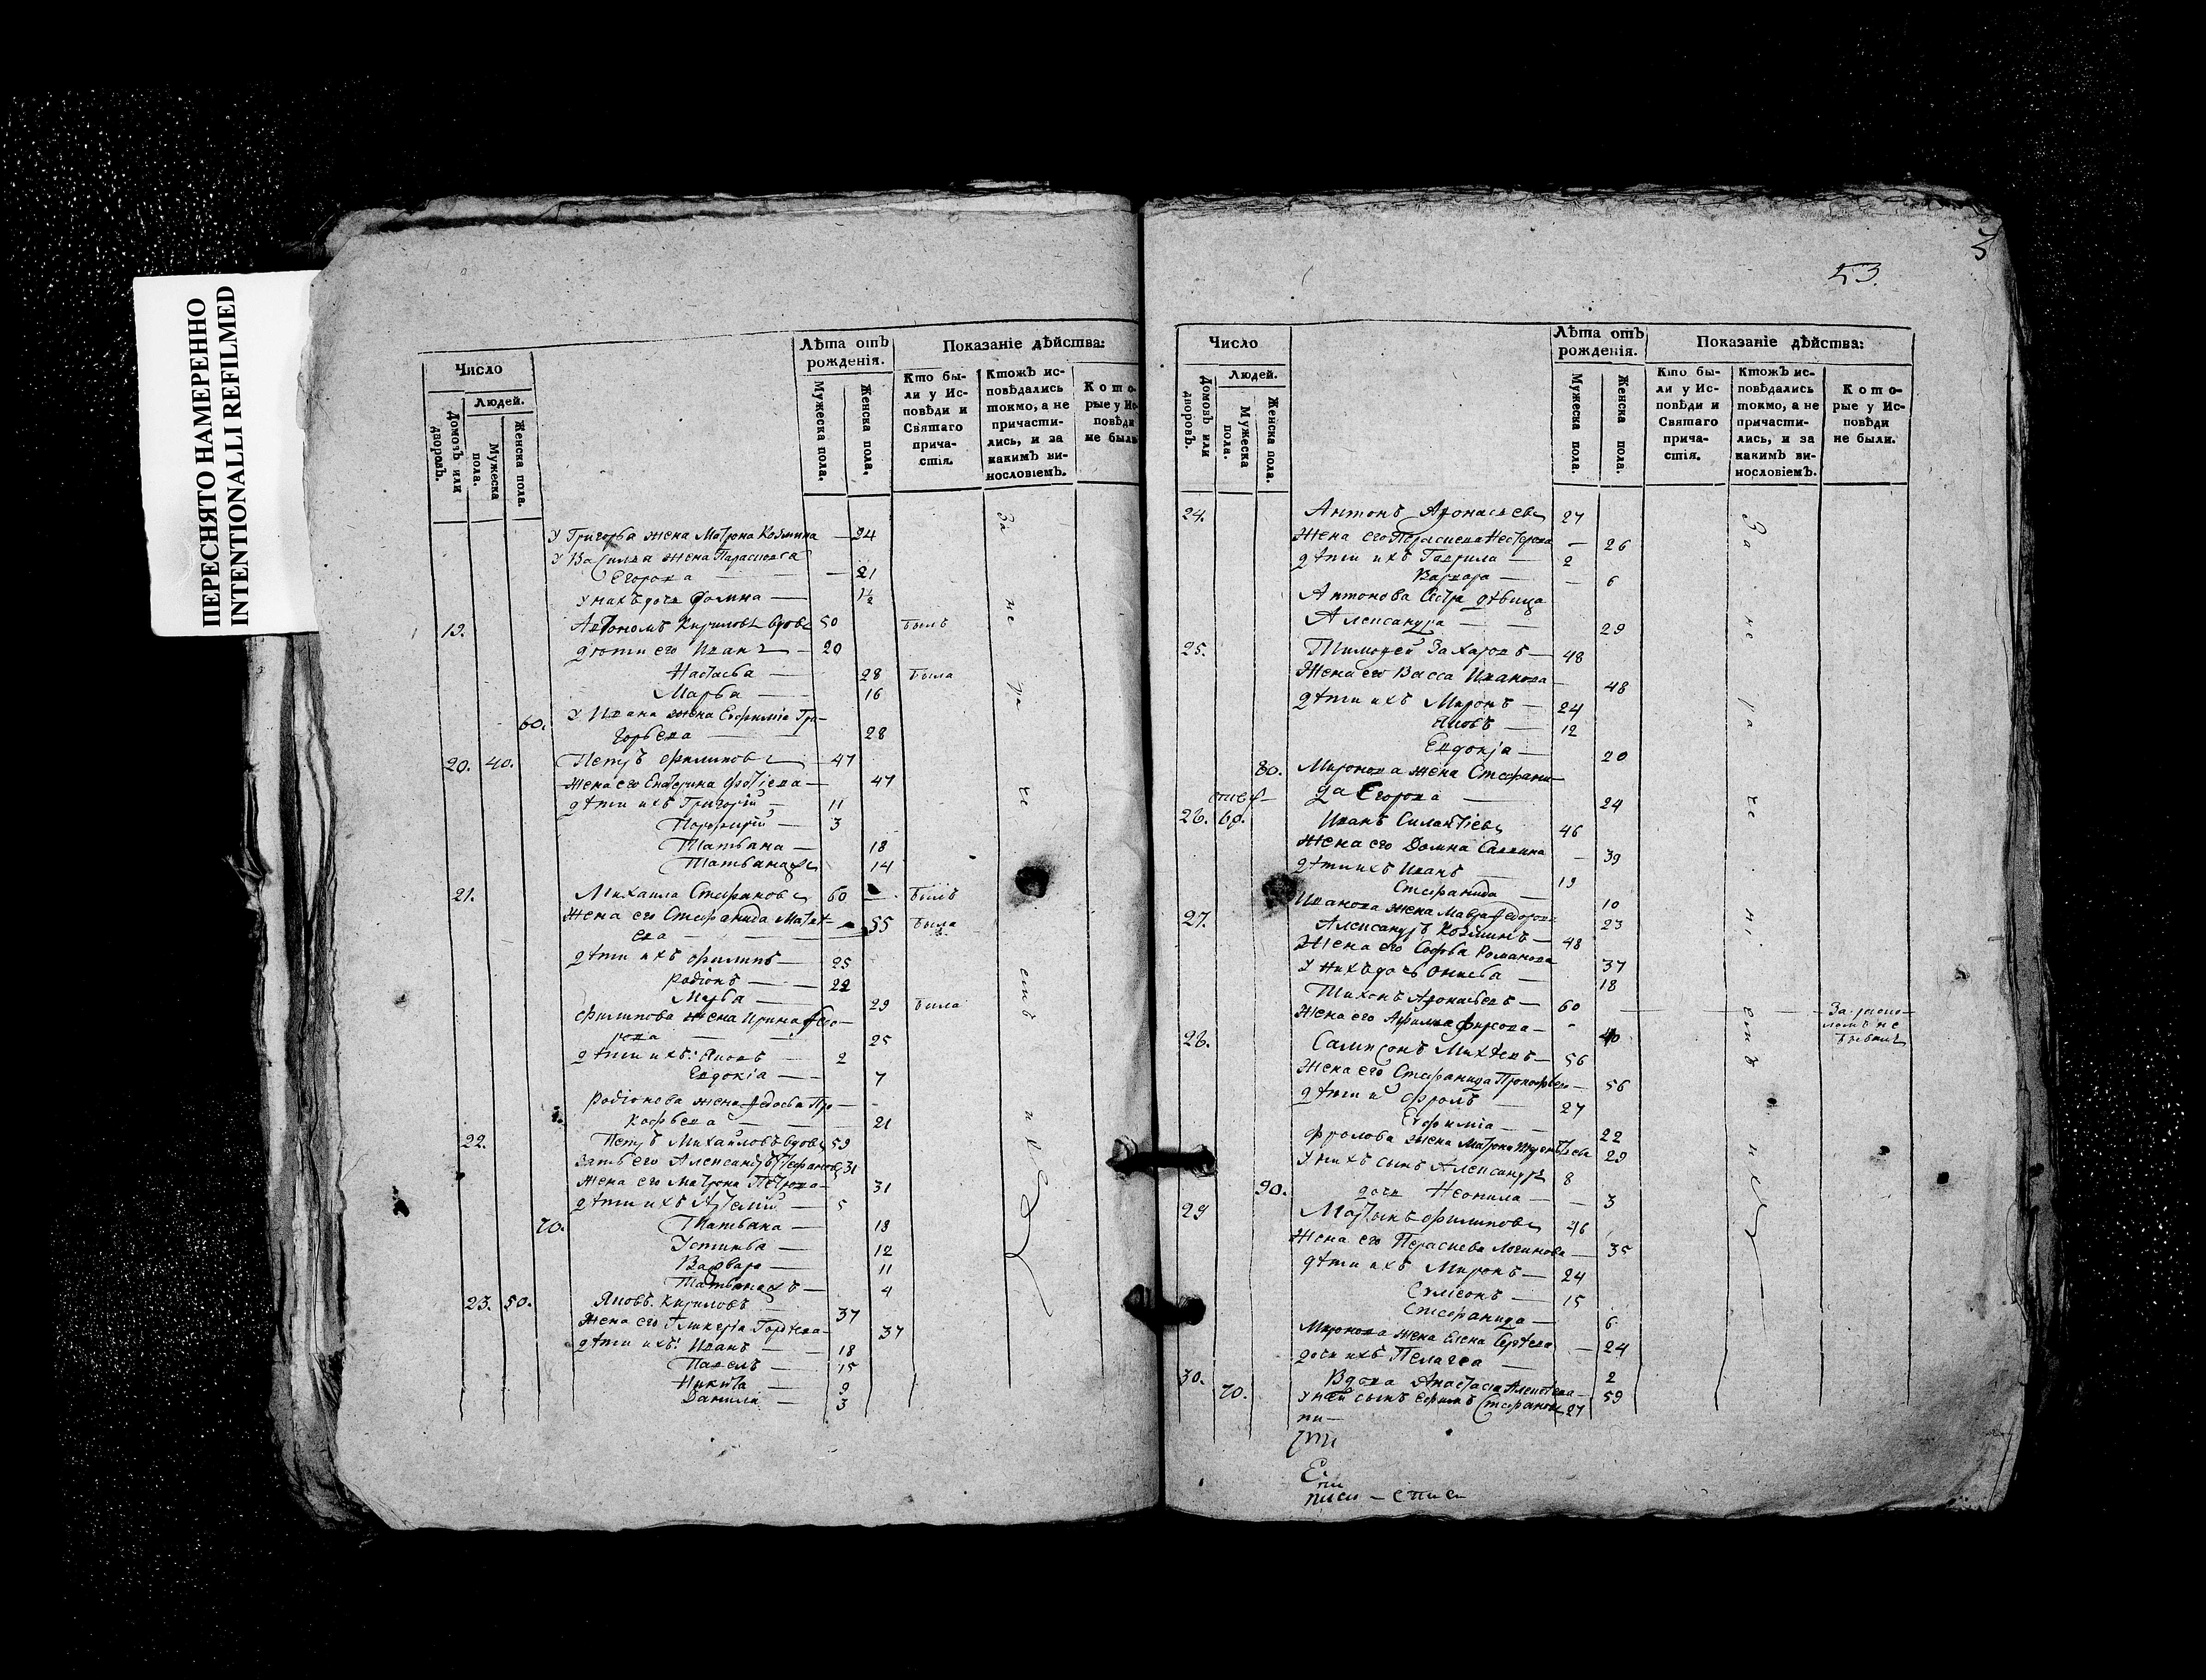 ПЕРЕСНЯТО НАМЕРЕННО
INTENTIONALLI REFILMED
Число
Людей.
Домовъ или дворовъ.
Мужеска пола.
Женска пола.
Лѣта отъ рожденія.
Мужеска пола.
Женска пола.
Показаніе дѣйства:
Кто бы-
ли у Ис-
повѣди и
Святаго
прича-
стія.
Ктожъ ис-
повѣдались
токмо, а не
причасти-
лись, и за
какимъ ви-
нословіемъ.
Кото-
рые у Ис-
повѣди
не были
У Григорья жена Матрона Козмина — 24
У Василья жена Параскева
Егорова — 21
у нихъ дочь Домна — 1½
19. Автономъ Кириловъ вдовъ 50 былъ
дѣти его Иванъ — 20
Настасья — 28 была
Марѳа — 16
60. У Ивана жена Евфимія Гри-
горьева — 28
20. 40. Петръ Филиповъ — 47
Жена его Екатерина Фотіева — 47
дѣти ихъ Григорій — 11
Порфирій — 3
Татьяна — 18
Татьяна — 14
21. Михаила Стефановъ 60 — былъ
Жена его Стефанида Матвѣ-
ева — 55 была
дѣти ихъ Филипъ — 25
Родіонъ — 22
Марѳа — 29 была
Филипова жена Ирина Фео-
рова — 25
дѣти ихъ: Яковъ — 2
Евдокіа — 7
Родіонова жена Федосья Про-
кофьева — 21
22. Петръ Михайловъ вдовъ 59
Зять его Александръ Стефановъ 31
Жена его Матрона Петрова — 31
дѣти ихъ Артемій — 5
70. Татьяна — 18
Устинья — 12
Варвара — 11
Татьяна — 4
23. 50. Яковъ Кириловъ — 37
Жена его Гликерія Гордѣева — 37
дѣти ихъ: Иванъ — 18
Павелъ — 15
Никита — 9
Данила — 3
За не ра че ніемъ ихъ
53.
Число
Людей.
Домовъ или дворовъ.
Мужеска пола.
Женска пола.
Лѣта отъ рожденія.
Мужеска пола.
Женска пола.
Показаніе дѣйства:
Кто бы-
ли у Ис-
повѣди и
Святаго
прича-
стія.
Ктожъ ис-
повѣдались
токмо, а не
причасти-
лись, и за
какимъ ви-
нословіемъ.
Кото-
рые у Ис-
повѣди
не были.
24. Антонъ Афонасьевъ 27
Жена его Параскева Нестерова — 26
дѣти ихъ Гаврила — 2
Варвара — 6
Антонова сестра дѣвица
Александра — 29
25. Тимофей Захаровъ — 48
Жена его Васса Иванова — 48
дѣти ихъ Миронъ — 24
Яковъ — 12
Евдокіа — 20
80. Миронова жена Стефани-
да Егорова — 24
26. 60. Иванъ Силантіевъ 46
Жена его Домна Саввина — 39
дѣти ихъ Иванъ — 19
Стефанида — 10
Иванова жена Мавра Федорова 23
27. Александръ Козминъ — 48
Жена его Софья Романова 37
У нихъ дочь Онисья — 18
Тихонъ Афонасьевъ — 60
Жена его Фирсова — 40
За раско-
ломъ не
бывшъ
28. Сампсонъ Михѣевъ — 56
Жена его Стефанида Прокофьева — 56
дѣти ихъ Фролъ — 27
Евфиміа — 22
Фролова жена Матрона 29
У нихъ сынъ Александръ 8
90. дочь Неонила — 3
29 Мартынъ Филиповъ 46
Жена его Параскева Логинова — 35
дѣти ихъ Миронъ — 24
15
Стефанида — 6
Миронова жена Елена Сергѣева — 24
дочь ихъ Пелагеа — 2
30. Вдова Анастасіа Алексѣева — 59
70. У ней сынъ Ефимъ Стефановъ 27
За не ра че ні емъ ихъ